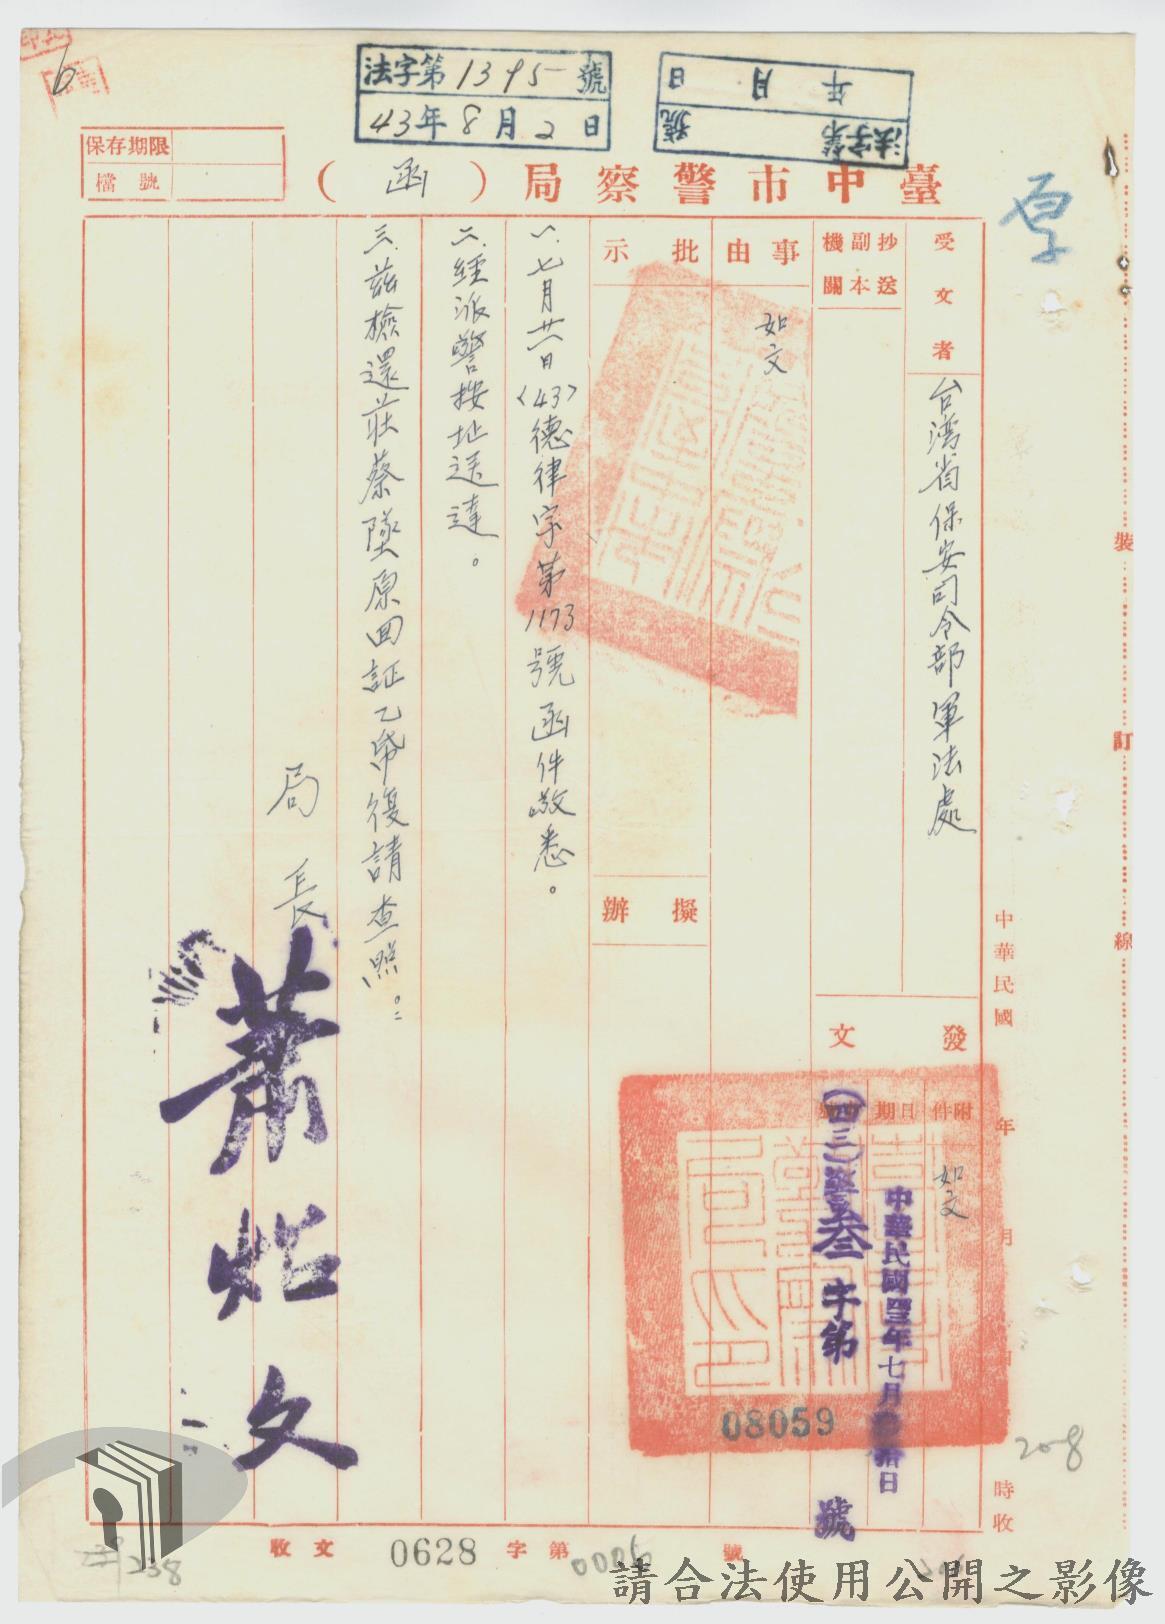 法字第1395號
43年8月2日
年月日
法字第號
保存期限
檔號
臺中市警察局（函）
受文者
台湾省保安司令部軍法處
抄送
副本
機關
事由
如文
批示
擬辦
發文
附件
如文
日期
中華民國四三年七月參拾日
(四三)警叁字第
08059
號
一.七月廿八日(43)德律字第1173號函件敬悉。
二.經派警按址送達。
三.茲檢還莊蔡墜原回証乙帋復請查照。
局長
蕭怡文
中華民國年月日時收
裝訂線
收文0628字第0006號
208
238
請合法使用公開之影像